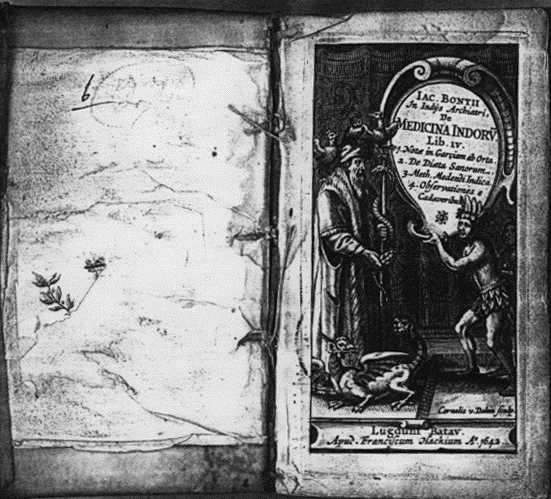 6
IAC. BONTII
In Indijs Archiatri,
De
MEDICINA INDORŨ
Lib. IV.
1. Notæ in Garciam ab Orta.
2. De Diæta Sanorum.
3. Meth. Medendi Indica.
4. Observationes e
Cadaverib.
Cornelis v. Dalen sculp.
Lugduni Batav.
Apud Franciscum Hackium Aº. 1642